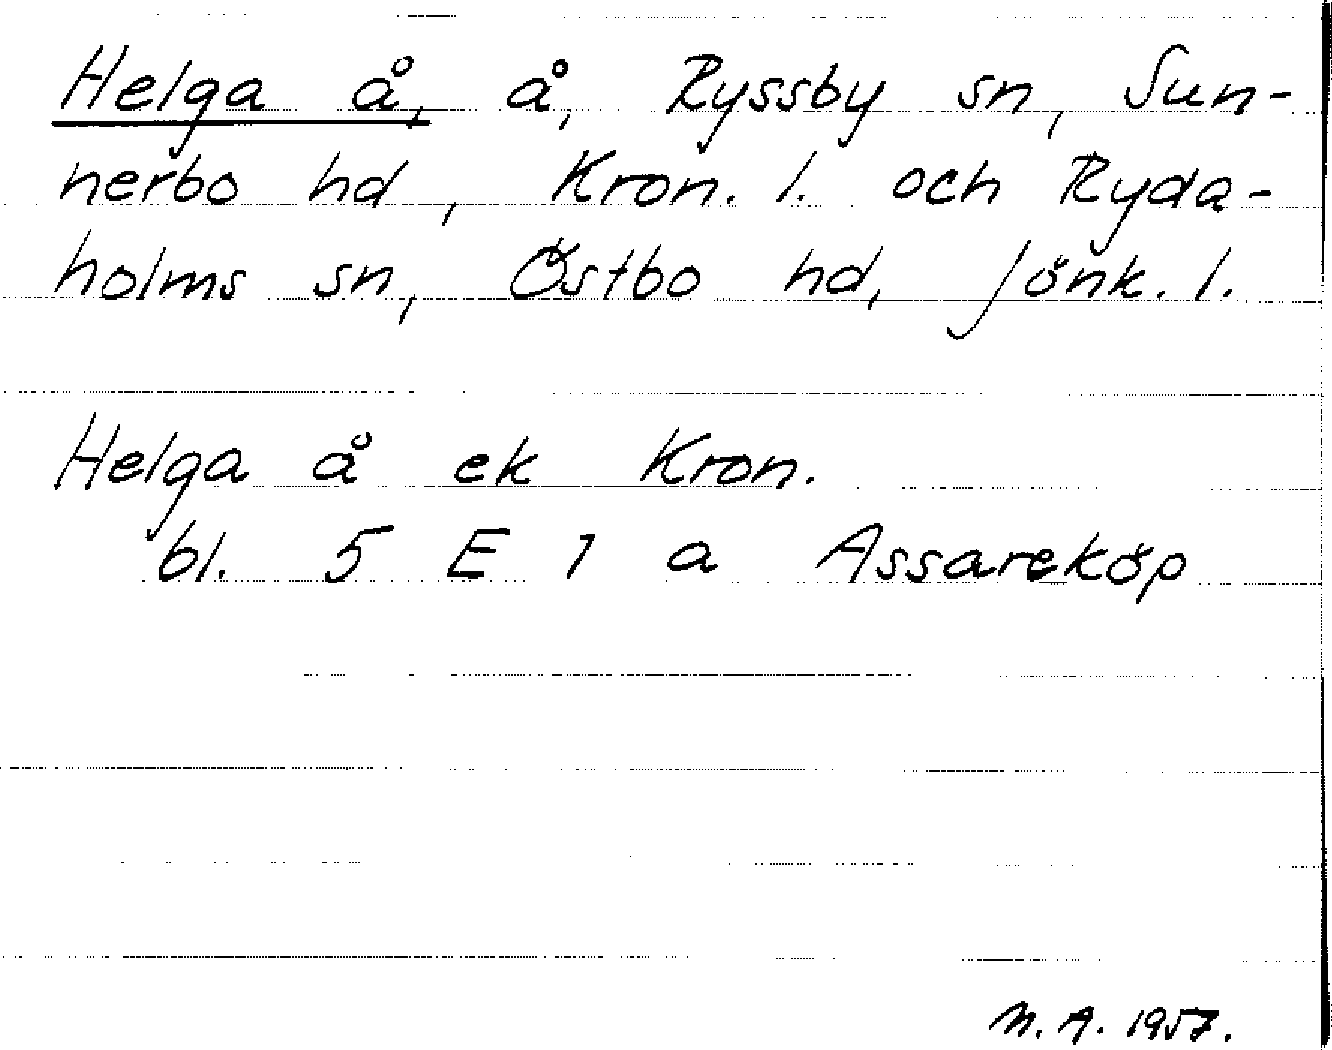 Helga å, å, Ryssby sn, Sun-
nerbo hd, Kron. l. och Ryda-
holms sn, Östbo hd, Jönk. l.
Helga å ek Kron.
bl. 5 E 1 a Assareköp
N. A. 1957.